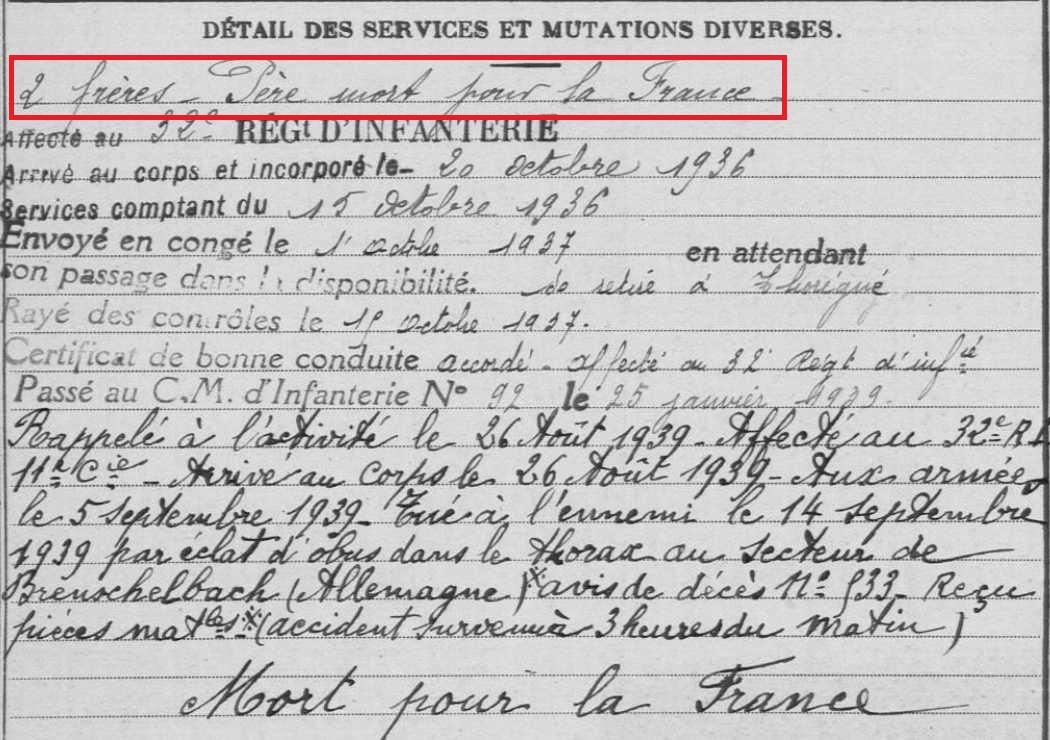 DÉTAIL DES SERVICES ET MUTATIONS DIVERSES.
2 frères – Père mort pour la France –
Affecté au 32e RÉGt D'INFANTERIE
Arrivé au corps et incorporé le 20 octobre 1936
Services comptant du 15 octobre 1936
Envoyé en congé le 1 octobre 1937 en attendant
son passage dans la disponibilité. se retire à Thorigné
Rayé des contrôles le 15 octobre 1937.
Certificat de bonne conduite accordé – affecté au 32e Régt d'infie
Passé au C.M. d'Infanterie No 92 le 25 janvier 1939.
Rappelé à l'activité le 26 Août 1939 – Affecté au 32e R.I.
11e Cie – Arrivé au corps le 26 Août 1939 – Aux armées
le 5 septembre 1939 – Tué à l'ennemi le 14 septembre
1939 par éclat d'obus dans le thorax au secteur de
Brenschelbach (Allemagne) x avis de décès No 533 – Reçu
pièces matles x (accident survenu à 3 heures du matin)
Mort pour la France